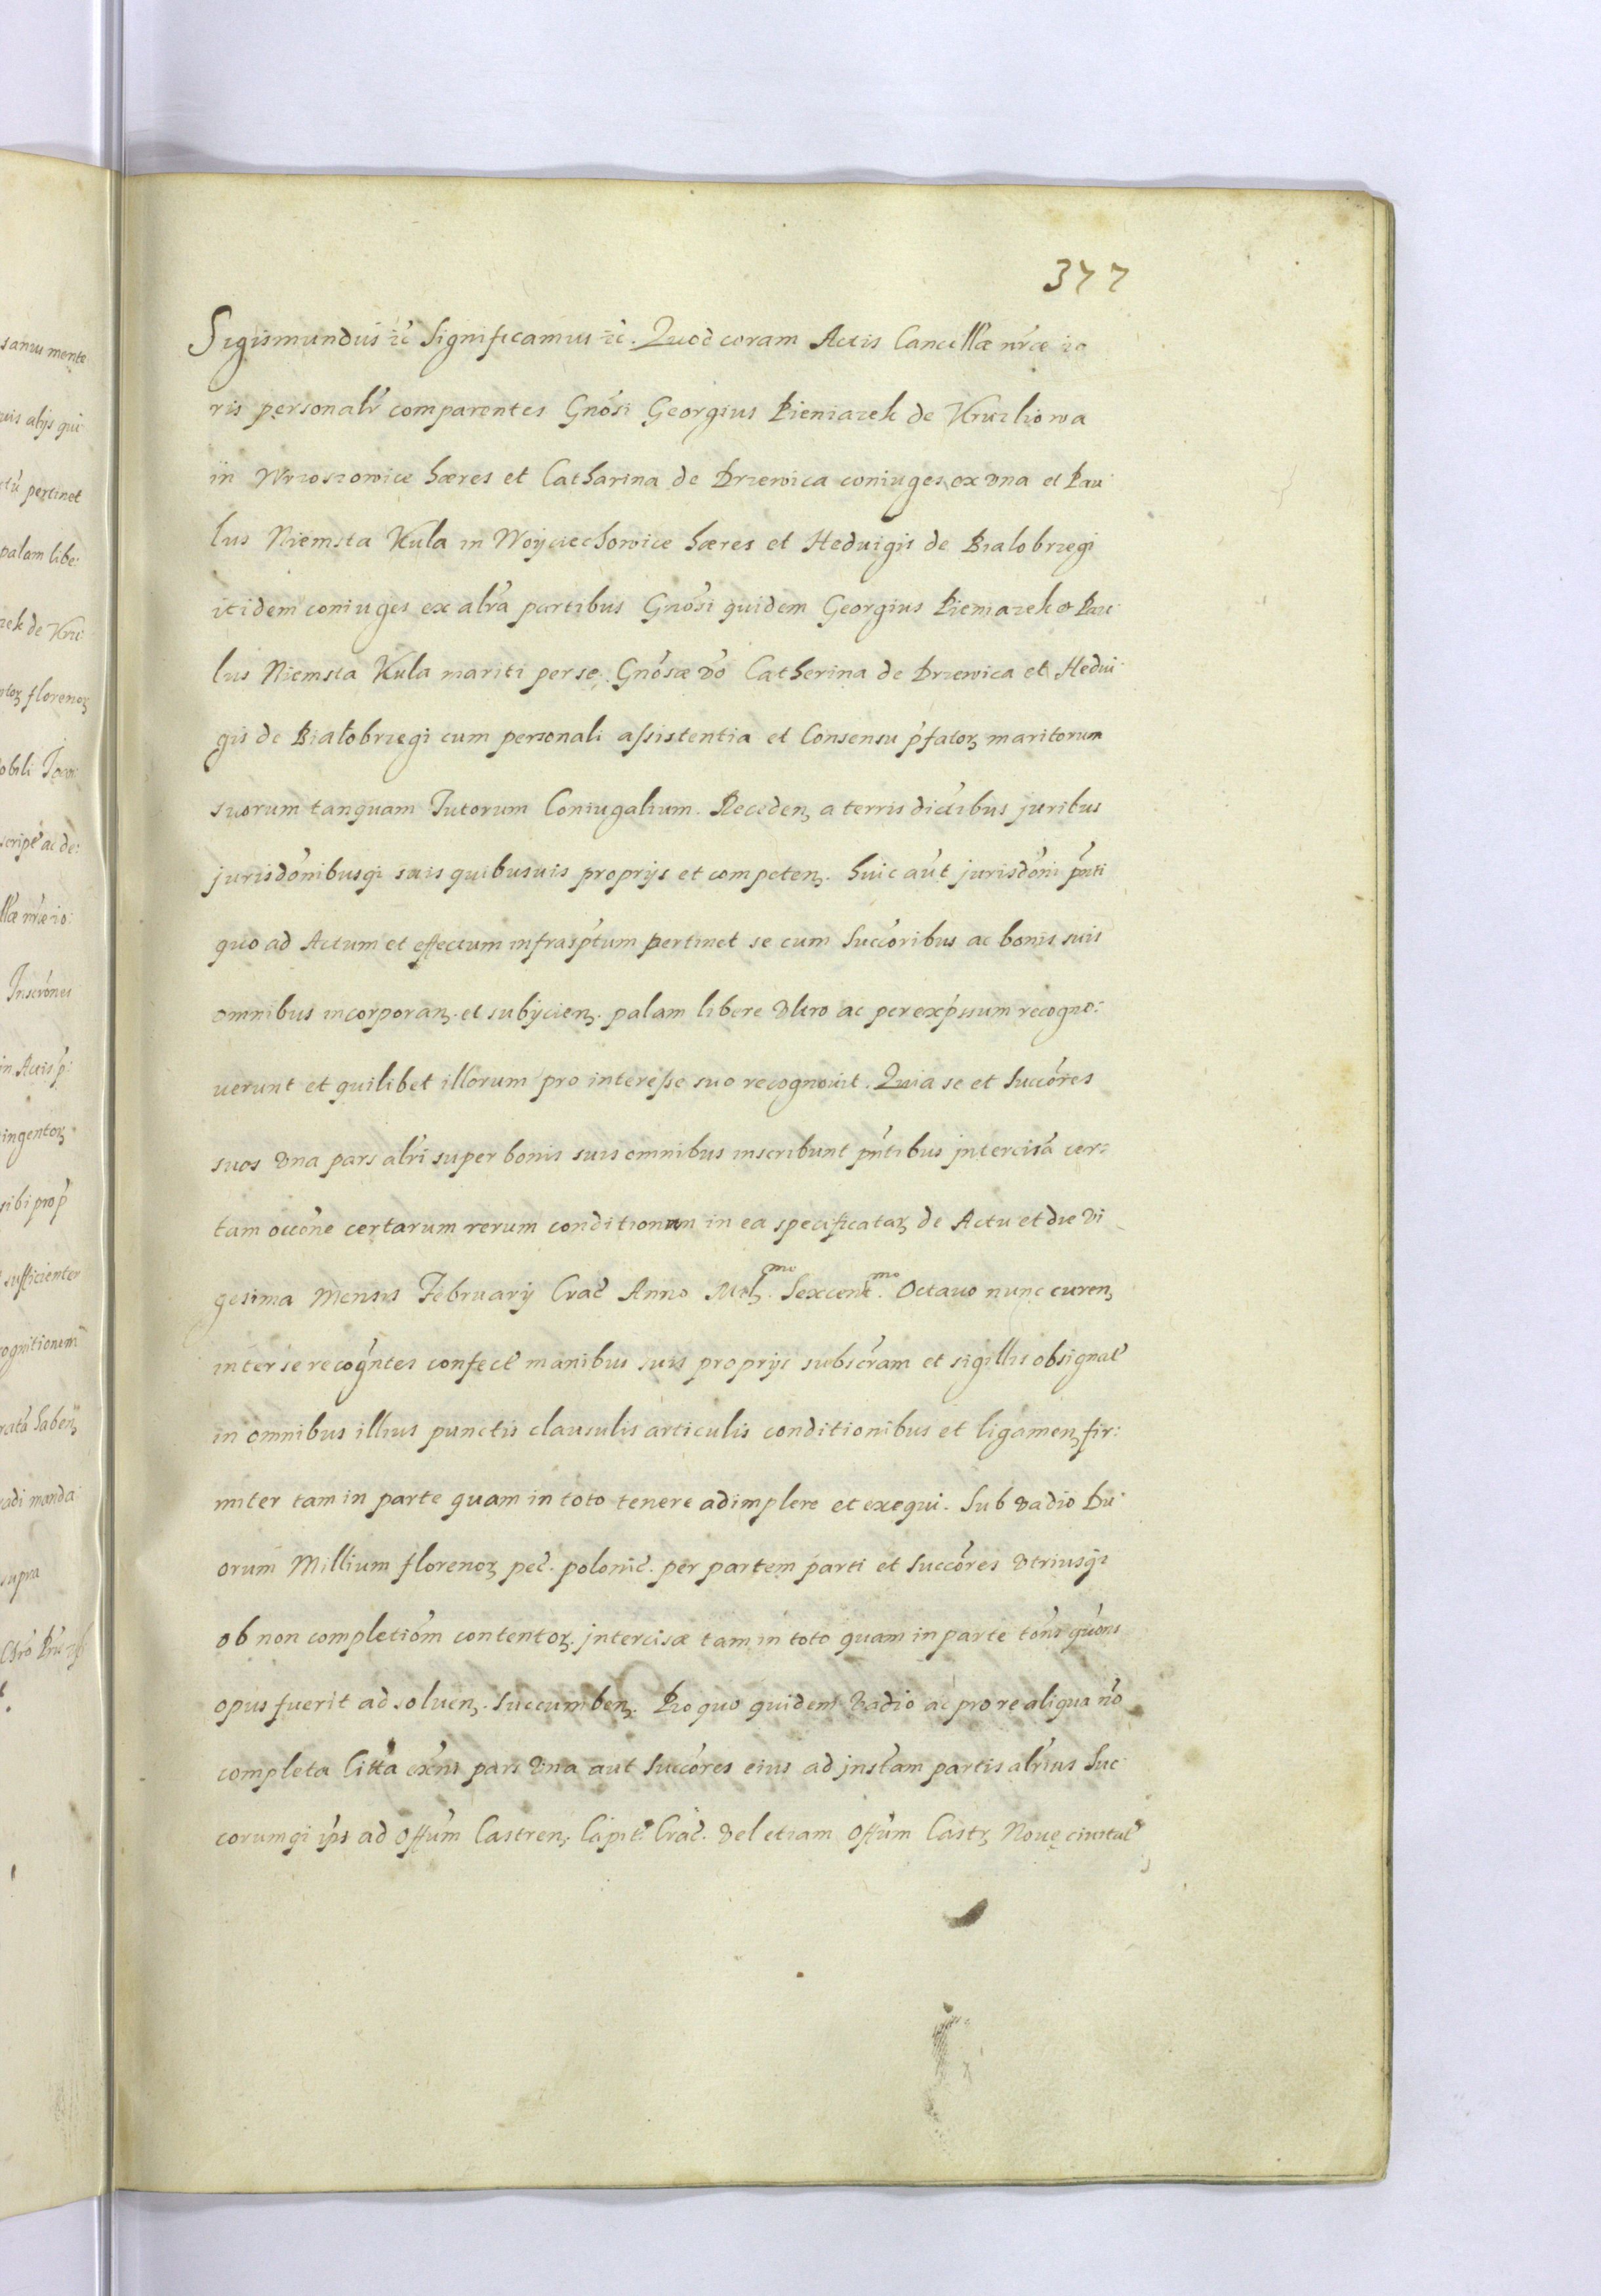 377
Sigismundus ℞c Significamus ℞c. Quod coram Actis Cancellæ nr̃æ io
ris personalr̃ comparentes Gnõsi Georgius Pieniazek de Kruzliowa
in Wrzoszowice hæres et Catharina de Drzewica coniuges ex vna et Pau
lus Niemsta Kula in Woyciechowice hæres et Heduigis de Bialobrzegi
itidem coniuges ex alrã partibus Gnõsi quidem Georgius Pieniazek et Pau
lus Niemsta Kula mariti per se. Gnõsæ võ Catherina de Drzewica et Hedui
gis de Białobrzegi cum personali assistentia et Consensu p̃fatoꝝ maritorum
suorum tanquam Tutorum Coniugalium. Receden̄ a terris dictibus juribus
jurisdõnibusqȝ suis quibusuis proprijs et competen̄. huic aũt jurisdõni pñti
quo ad Actum et effectum infrasp̃tum pertinet se cum Succõribus ac bonis suis
omnibus incorporan̄. et subijcien̄. palam libere vltro ac per exp̃ssum recogno:
uerunt et quilibet illorum pro interesse suo recognouit. Quia se et Succõres
suos vna pars alr̃i super bonis suis omnibus inscribunt pñtibus intercisã cer=
tam occõne certarum rerum conditionum in ea specificataꝝ de Actu et die vi
gesima Mensis February Crac̃ Anno Mill.mo Sexcent.mo Octauo nunc curen̄
inter se recogñtes confect̃ manibus suis proprijs subscr̃am et sigillis obsignat̃
in omnibus illius punctis clausulis articulis conditionibus et ligamen̄ fir:
miter tam in parte quam in toto tenere adimplere et exequi. Sub vadio Du
orum Millium florenoꝝ pec̃. polonic̃. per partem parti et Succõres vtriusqȝ
ob non completiõm contentoꝝ. jntercisæ tam in toto quam in parte tõns quõns
opus fuerit ad soluen̄. Succumben̄. Pro quo quidem vadio ac pro re aliqua nõ
completa citta exñs pars vna aut Succõres eius ad jnstam partis alr̃ius Suc
corumqȝ ips̃ ad Offũm Castren̄. Capit̃ Crac̃. vel etiam Offũm Castr̄ Nouę ciuitat̃